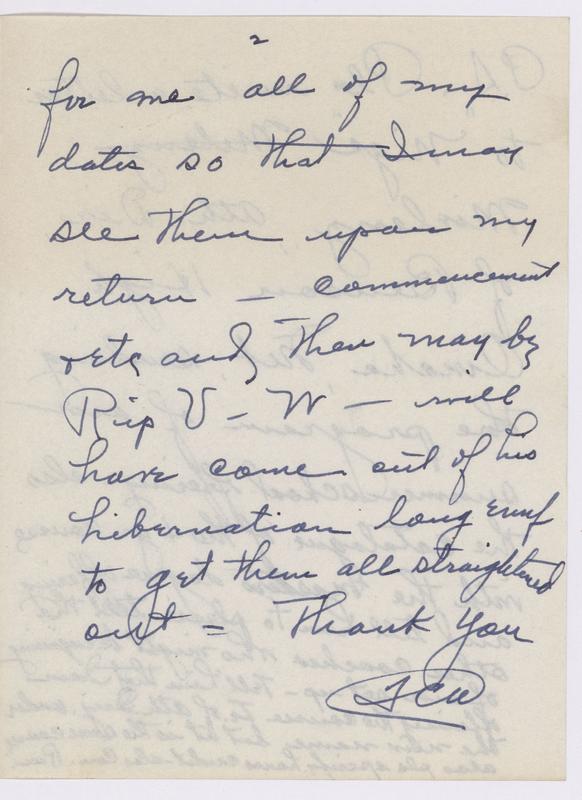 2
for me all of my
dates so that I may
see them upon my
return – commencement
& etc and then may be
Rip V – W – will
have come out of his
hibernation long enuf
to get them all straightened
out – Thank you
FCA